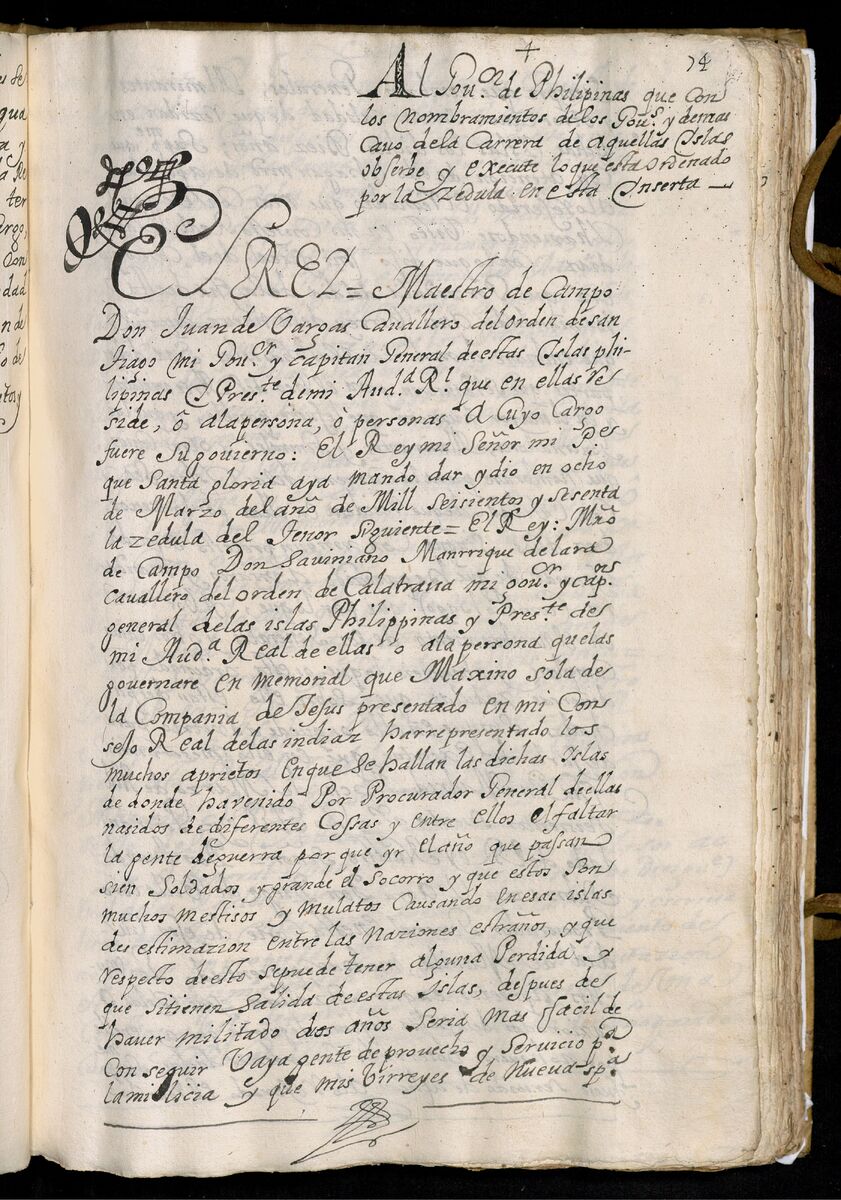 +
74
Al Gou.ᵒʳ de Philipinas que con
los nombramientos de los Gou.ˢ y demas
Cavo de la Carrera de aquellas Islas
obserbe y execute lo que esta ordenado
por la Zedula en esta Inserta —
El REY = Maestro de Campo
Don Juan de Vargas Cavallero del orden de san
tiago mi Gou.ᵒʳ y capitan General de estas Islas phi-
lipinas y Pres.ᵗᵉ de mi Aud.ᵃ R.ˡ que en ellas re
side, ô ala persona, ô personas a Cuyo Cargo
fuere su govierno: El Rey mi Señor mi P.ᵉ
que Santa gloria aya mando dar y dio en ocho
de Marzo del año de Mill seisientos y sesenta
la zedula del Tenor siguiente = El Rey: Mrõ
de Campo Don Saviniano Manrrique de lara
cavallero del orden de Calatrava mi gou.ᵒʳ y cap.ⁿ
general de las islas Philippinas y Pres.ᵗᵉ de
mi Aud.ᵃ Real de ellas o ala persona que las
governare en memorial que Maxino Sola de
la Compania de Jesus presentado en mi Con
sejo Real de las indiaz ha rrepresentado los
muchos aprietos en que se hallan las dichas Islas
de donde ha venido Por Procurador General de ellas
nasidos de diferentes Cossas y entre ellos el faltar
la gente de guerra por que yr el año que passan
sien Soldados y grande el socorro y que estos son
muchos mestisos y mulatos Causando en esas islas
des estimazion entre las naziones estrañas, y que
respecto de esto se puede tener alguna Perdida y
que si tienen salida de estas Islas, despues de
haver militado dos años seria mas facil de
Con seguir Vaya gente de provecho y servicio p.ᵃ
la milicia y que mis Virreyes de Nueva sp.ᵃ